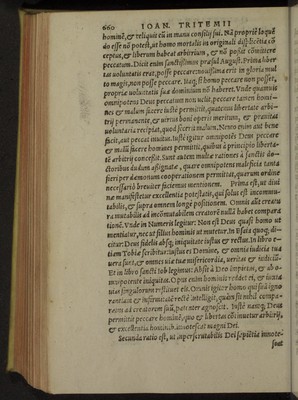 660 IOAN. TRITEMII
hominē, & reliquit eū in manu consilij sui. Nā propriè loquē
do esse nō potest, ut homo mortalis in originali
ceptus, & liberum habeat arbitrium, & nō posse cōmittere
peccatum. Dicit enim sanctissimus præsul August. Prima liber
tas uoluntatis erat, posse peccare: nouissima erit in gloria mul
to magis, non posse peccare. Si homo peccare non posset,
propriæ uoluntatis suæ dominium nō haberet. Vnde quamuis
omnipotens Deus peccatum non uelit, peccare tamen homi-
nes & malum facere iustè permittit, quatenus libertate arbi-
trij permanente, & uirtus boni operis meritum, & prauitas
uoluntaria recipiat, quod fecerit malum. Nemo enim aut bene
facit, aut peccat inuitus. Iustè igitur omnipotēs Deus peccare
& malū facere homines permittit, quibus à principio liberta-
tē arbitrij concessit. Sunt autem multæ rationes à sanctis do-
ctoribus dudum assignatæ, quare omnipotens malificia tanta
fieri per dæmonum cooperationem permittat, quarum ordine
necessariò breuiter faciemus mentionem. Prima est, ut diui
næ manifestetur excellentia potestatis, qui solus est incommu-
tabilis, & supra omnem longè positionem. Omnis autē creatu
ra mutabilis ad incommutabilem creatorē nullā habet compara
tionē. Vnde in Numeris legitur: Non est Deus quasi homo ut
mentiatur, nec ut filius hominis ut mutetur. In Esaia quoq; di-
citur: Deus fidelis absq; iniquitate iustus & rectus. In libro e-
tiam Tobiæ scribitur: Iustus es Domine, & omnia iudicia tua
uera sunt, & omnes uiæ tuæ misericordia, ueritas & iudiciū.
Et in libro sancti Iob legimus: Absit à Deo impietas, & ab o-
mnipotente iniquitas. Opus enim hominis reddet ei, & iuxta
uias singulorum restituet eis. Omnis igitur homo qui suā igno
rantiam & infirmitatē rectè intelligit, quàm sit nihil compa-
ratione ad creatorem sui, patenter agnoscit. Iustè nanq; Deus
permittit peccare hominē, quo & libertas cōseruetur arbitrij,
& excellentia hominib. innotescat magni Dei.
Secunda ratio est, ut imperscrutabilis Dei sapiētia innote-
scat